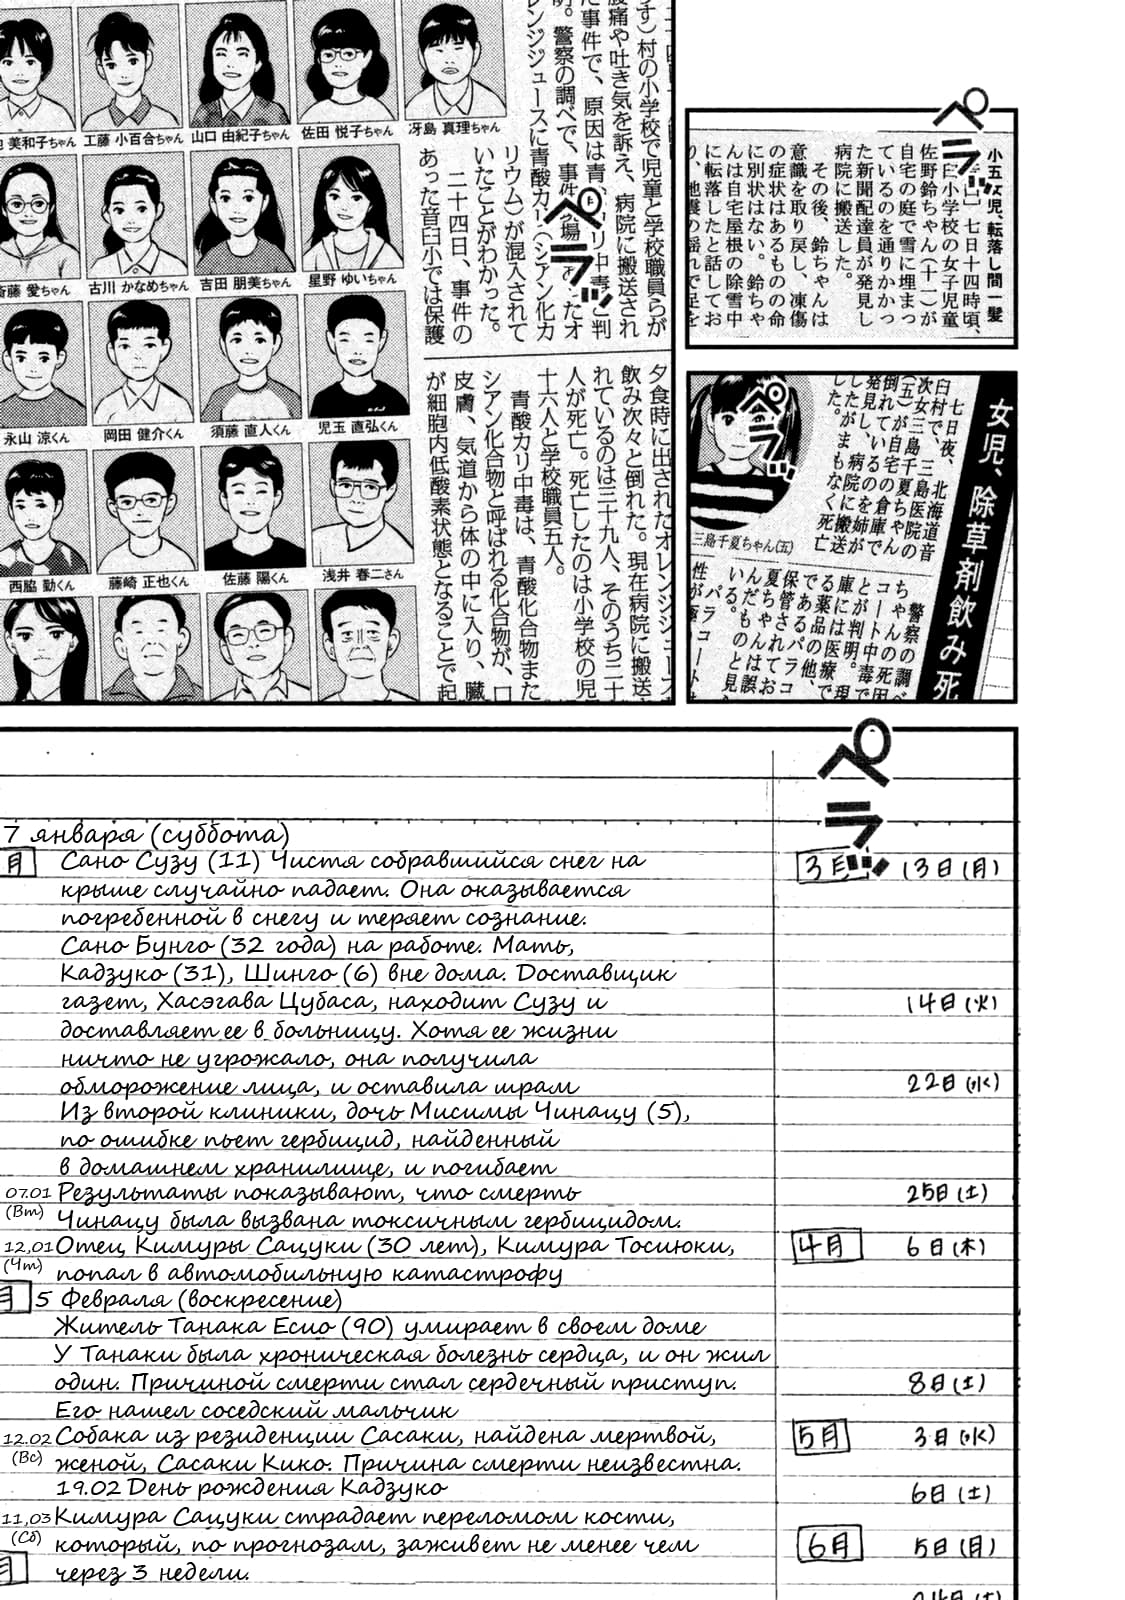 小五女児、転落し間一髪
七日十四時頃、
臼小学校の女子児童
佐野鈴ちゃん(十一)が
自宅の庭で雪に埋まっ
ているのを通りかかっ
た新聞配達員が発見し
病院に搬送した。
その後、鈴ちゃんは
意識を取り戻し、凍傷
の症状はあるものの命
に別状はない。鈴ちゃ
んは自宅屋根の除雪中
に転落したと話してお
ペラッ
す)村の小学校で児童と学校職員らが
腹痛や吐き気を訴え、病院に搬送され
た事件で、原因は青
リ中毒と判
明。警察の調べで、事件現場
あったオ
レンジジュースに青酸カリ(シアン化カ
リウム)が混入されて
いたことがわかった。
二十四日、事件の
あった音臼小では保護
夕食時に出されたオレンジジュース
飲み次々と倒れた。現在病院に搬送
れているのは三十九人、そのうち二十
人が死亡。死亡したのは小学校の児
十六人と学校職員五人。
青酸カリ中毒は、青酸化合物また
シアン化合物と呼ばれる化合物が、口
皮膚、気道から体の中に入り、臓
が細胞内低酸素状態となることで起
ペラッ
美和子ちゃん
工藤 小百合ちゃん
山口 由紀子ちゃん
佐田 悦子ちゃん
冴島 真理ちゃん
斎藤 愛ちゃん
古川 かなめちゃん
吉田 朋美ちゃん
星野 ゆいちゃん
永山 涼くん
岡田 健介くん
須藤 直人くん
児玉 直弘くん
西脇 勤くん
藤崎 正也くん
佐藤 陽くん
浅井 春二さん
女児、除草剤飲み死
七日夜、北海道音
臼村で、三島医院の
次女三島千夏ちゃん
(五)が自宅の倉庫で
倒れているのを姉が
発見し、病院に搬送
したがまもなく死亡
した。
三島千夏ちゃん(五)
警察の調べ
ちゃんの死因
コート中毒で
とが判明。現
庫には医療で
る薬品の他、
であるパラコ
保管されてお
夏ちゃんは誤
んだものと見
いる。
パラコート
性が極
ペラッ
ペラッ
7 января (суббота)
月 Сано Сузу (11) Чистя собравшийся снег на
крыше случайно падает. Она оказывается
погребенной в снегу и теряет сознание.
Сано Бунго (32 года) на работе. Мать,
Кадзуко (31), Шинго (6) вне дома. Доставщик
газет, Хасэгава Цубаса, находит Сузу и
доставляет ее в больницу. Хотя ее жизни
ничто не угрожало, она получила
обморожение лица, и оставила шрам
Из второй клиники, дочь Мисимы Чинацу (5),
по ошибке пьет гербицид, найденный
в домашнем хранилище, и погибает
07.01 Результаты показывают, что смерть
(Вт) Чинацу была вызвана токсичным гербицидом.
12,01 Отец Кимуры Сацуки (30 лет), Кимура Тосиюки,
(Чт) попал в автомобильную катастрофу
月 5 Февраля (воскресение)
Житель Танака Есио (90) умирает в своем доме
У Танаки была хроническая болезнь сердца, и он жил
один. Причиной смерти стал сердечный приступ.
Его нашел соседский мальчик
12.02 Собака из резиденции Сасаки, найдена мертвой,
(Вс) женой, Сасаки Кико. Причина смерти неизвестна.
19.02 День рождения Кадзуко
11,03 Кимура Сацуки страдает переломом кости,
(Сб) который, по прогнозам, заживет не менее чем
月 через 3 недели.
3月 13日(月)
14日(火)
22日(水)
25日(土)
4月 6日(木)
8日(土)
5月 3日(水)
6日(土)
6月 5日(月)
24日(土)